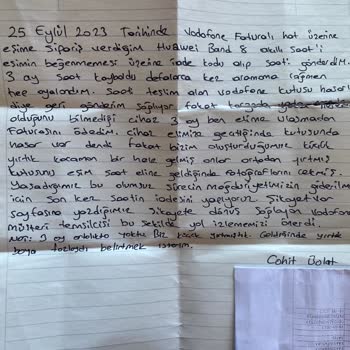 25 Eylül 2023 Tarihinde Vodafone Faturalı hat üzerine
eşime sipariş verdiğim Huawei Band 8 akıllı saat'i
eşimin beğenmemesi üzerine iade kodu alıp saati gönderdim.
3 ay saat kayboldu defalarca kez aramama rağmen
hep oyalandım. saati teslim alan vodafone kutusu hasarlı
diye geri gönderim sağlıyor fakat
olduğunu bilmediği cihaz 3 ay ben elime ulaşmadan
Faturasını ödedim. cihaz elimize geçtiğinde kutusunda
hasar var dendi fakat bizim oluşturduğumuz küçük
yırtık kocaman bir hale gelmiş onlar ortadan yırtmış
kutusunu eşim saat eline geldiğinde fotoğraflarını çekmiş.
Yaşadığımız bu olumsuz sürecin mağduriyetimizin giderilmesi
için son kez saatin iadesini yapıyoruz. Şikayet var
sayfasına yazdığımız şikayete dönüş sağlayan vodafone
müşteri temsilcisi bu şekilde yol izlememizi önerdi.
NOT: 3 ay ortalıkta yoktu Biz küçük yırtmıştık. Geldiğinde yırtık
fazlaydı belirtmek isterim.
Cahit Polat